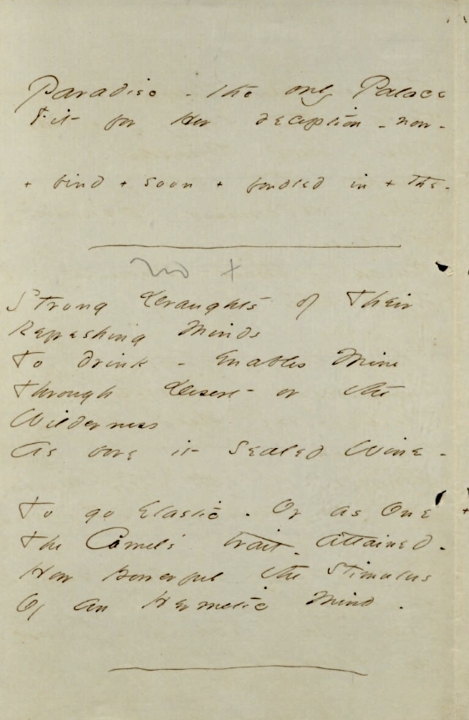 Paradise - the only Palace
Fit for Her reception - now -
+ bind + soon + fondled in + The -
+
Strong Draughts of Their
Refreshing Minds
To drink - enables Mine
Through Desert or the
Wilderness
As bore it Sealed Wine -
To go elastic - Or as One +
The Camel's trait - attained -
How powerful the Stimulus
Of an Hermetic Mind -